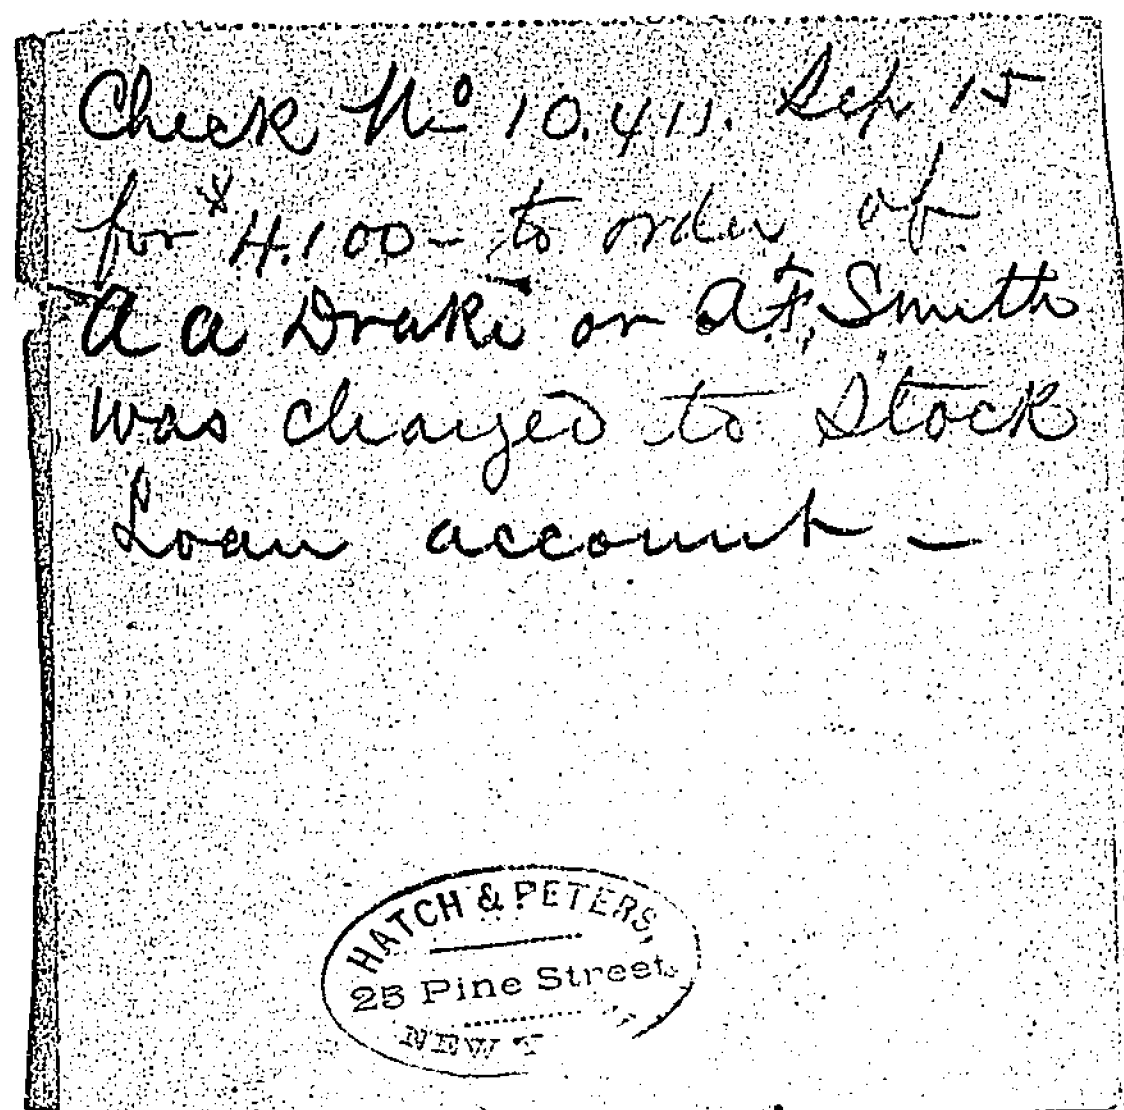 Check No 10.411. Sep 15
for $4.100- to order of
A A Drake or A.F. Smith
was charged to Stock
Loan account -
HATCH & PETERS,
25 Pine Street,
NEW Y